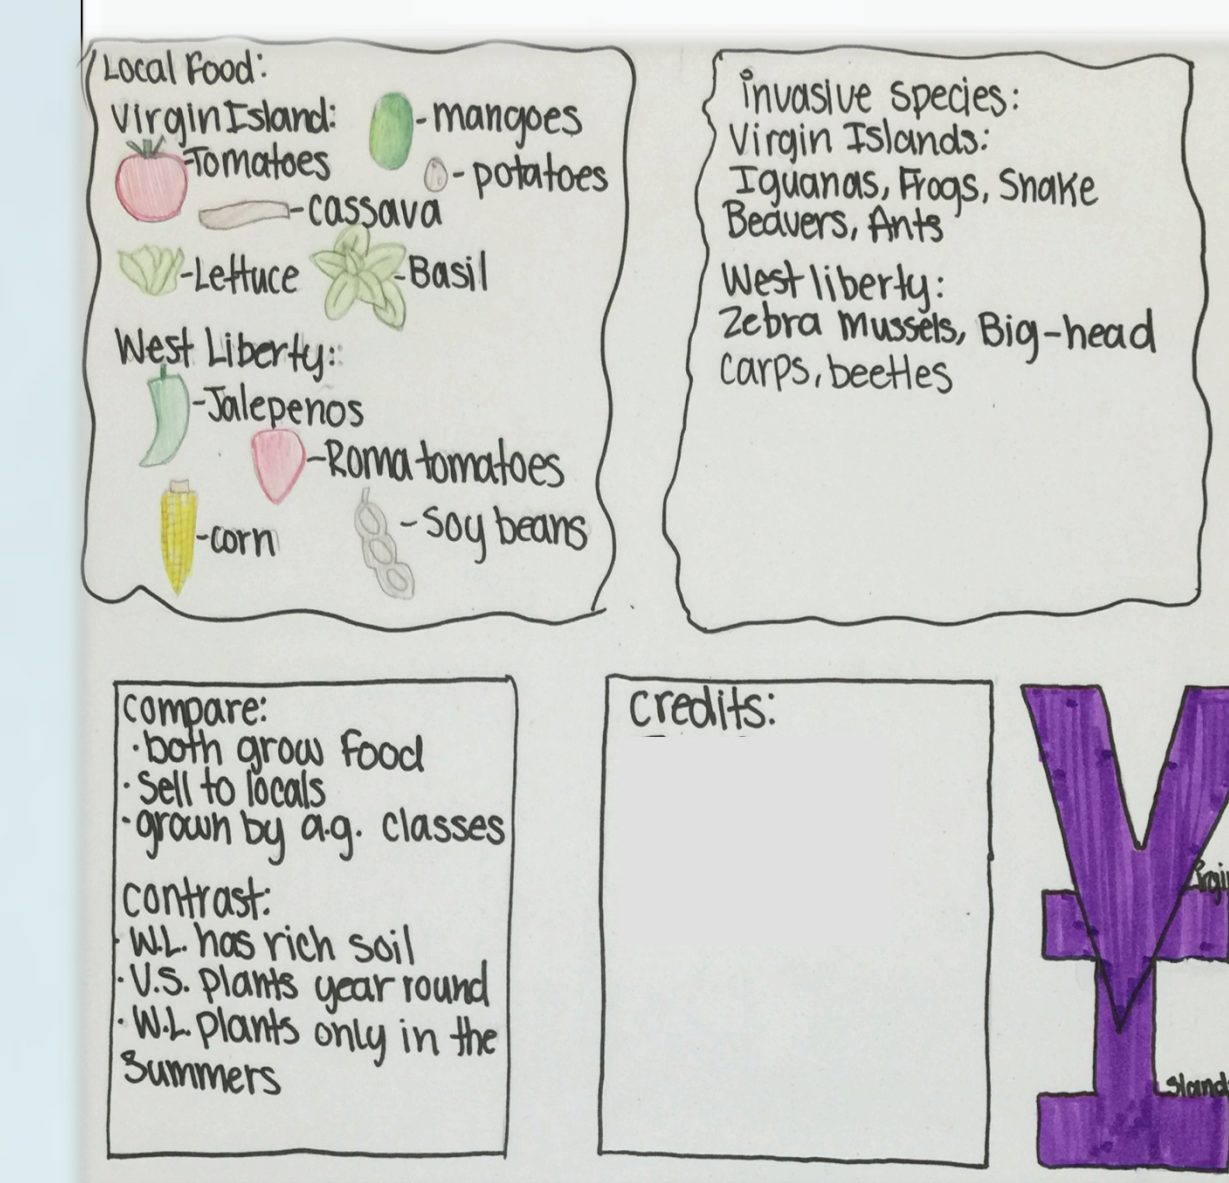 Local Food:
Virgin Island:
-mangoes
-Tomatoes
-potatoes
-cassava
-Lettuce
-Basil
West Liberty:
-Jalepenos
-Roma tomatoes
-corn
-Soy beans
invasive species:
Virgin Islands:
Iguanas, Frogs, Snake
Beavers, Ants
West liberty:
Zebra Mussels, Big-head
carps, beetles
compare:
·both grow food
·Sell to locals
·grown by a.g. classes
contrast:
·W.L. has rich soil
·V.S. plants year round
·W.L plants only in the
Summers
Credits:
V
irgin
I
slands